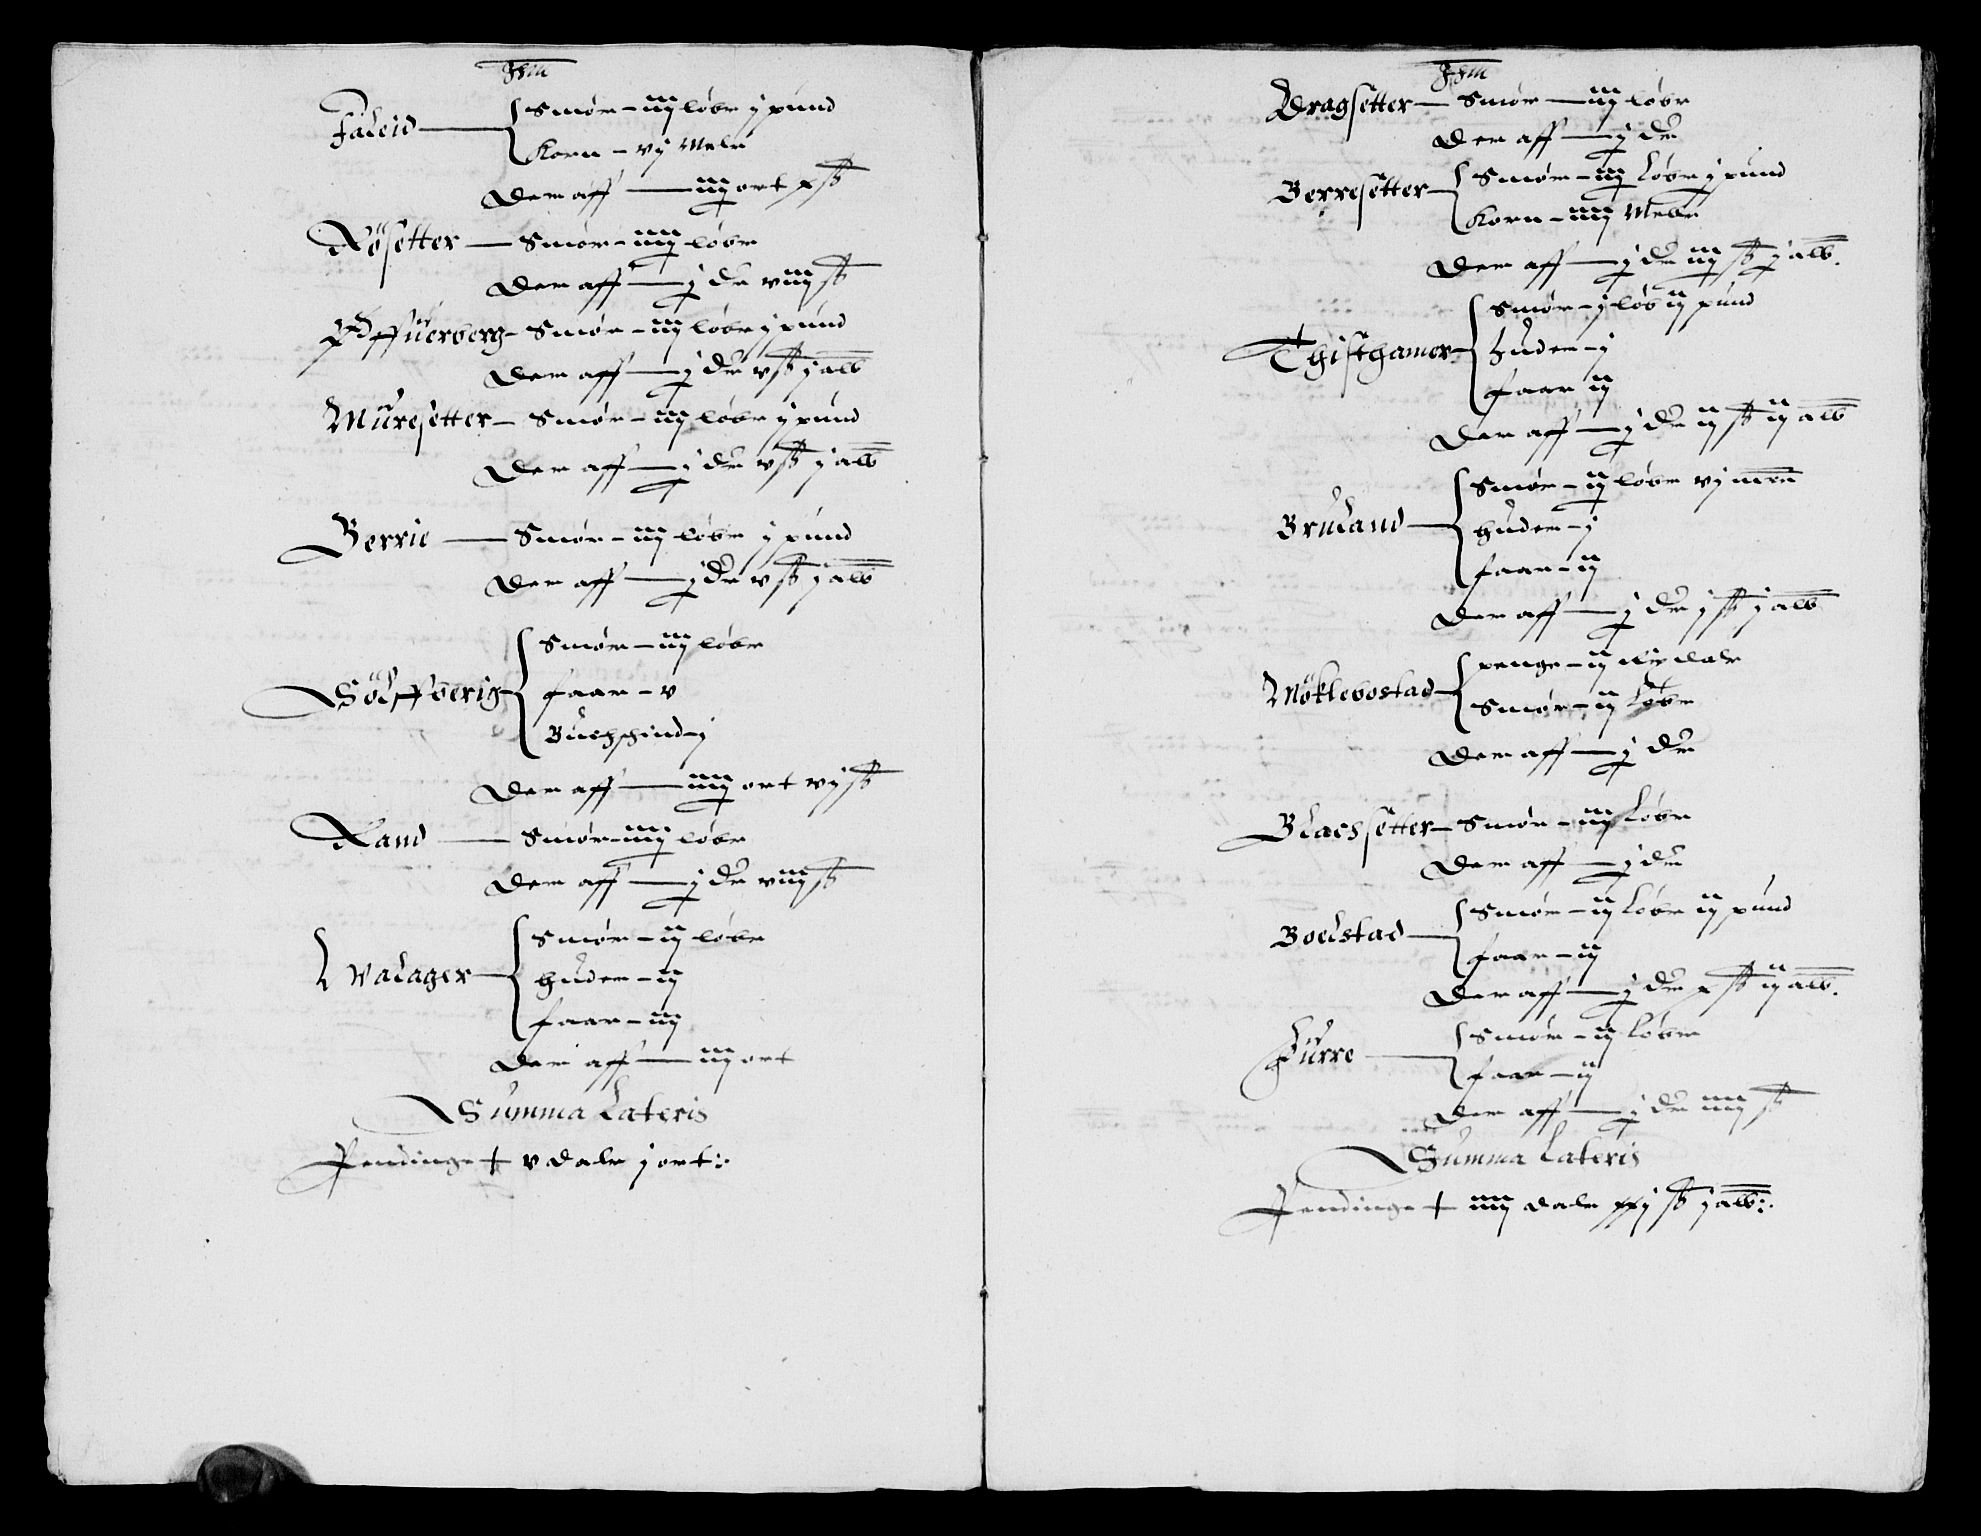 Faleid — Smør – iij løbe j pund
Korn – vj Mele
Der aff — iij ort x ß
Røsetter — Smør – iiij løbe
Der aff — j dr viij ß
Smør – iij løbe j pund
Der aff — j dr v ß j alb
Müresetter – Smør – iij løbe j pund
Der aff — j dr v ß j alb
Berrie — Smør – iij løbe j pund
Der aff — j dr v ß j alb
Sølffberig – Smør – iij løbe
faar – v
Buchschind – j
Der aff — iiij ort vj ß
Rand — Smør – iiij løbe
Der aff — j dr viij ß
Hvalager – Smør – ij løbe
huder – ij
faar – iij
Der aff — iij ort
Summa Lateris
Pendinge + v dale j ort
Dragsetter — Smør — iij løbe
Der aff — j dr
Berresetter – Smør – iij løbe j pund
Korn – iiij Mele
Der aff — j dr iij ß j alb.
Thisthamer – Smør – j løb ij pund
huder – j
faar ij
Der aff — j dr ij ß ij alb
Bruland — Smør – ij løbe vj
huder – j
faar – ij
Der aff — j dr j ß j alb
Møklebostad – penge – ij dale
Smør – ij løbe
Der aff — j dr
Blachsetter – Smør – iij løbe
Der aff — j dr
Boelstad — Smør – ij løbe ij pund
faar – ij
Der aff — j dr x ß ij alb.
Furre — Smør – ij løbe
faar – ij
Der aff — j dr iiij ß
Summa Lateris
Pendinge + iiij dale xxj ß j alb